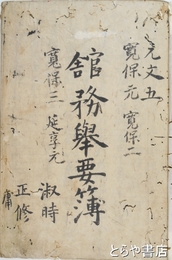 元文五
寛保元 寛保二
舘務擧要簿
寛保三 延享元
淑時
正修
庸
とらや書店